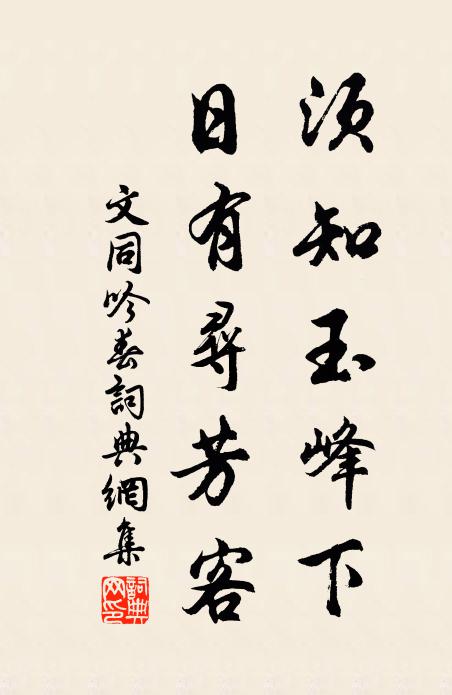 须知玉峰下
日有尋芳客
文同吟春詞典網集
詞典
网印